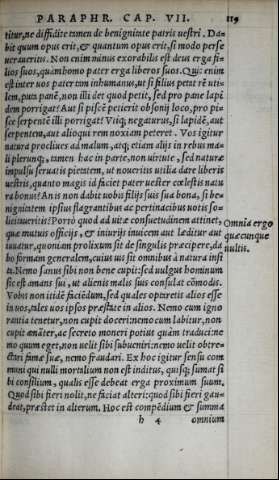 PARAPHR. CAP. VII. 119
titur, ne diffidite tamen de benignitate patris uestri. Da=
bit quum opus erit, & quantum opus erit, si modo perse
ueraueritis. Non enim minus exorabilis est deus erga fi=
lios suos, quam homo pater erga liberos suos. Quis enim
est inter uos pater tam inhumanus, ut si filius petat re̅ uti=
lem, puta pane̅, non illi det quod petit, sed pro pane lapi
dem porrigat? Aut si pisce̅ petierit obsonij loco, pro pis=
ce serpente̅ illi porrigat? Vtiq; negaturus, si lapide̅, aut
serpentem, aut alioqui rem noxiam peteret. Vos igitur
natura procliues ad malum, atq; etiam alijs in rebus ma=
li plerunq;, tamen hac in parte, non uirtute, sed naturæ
impulsu seruatis pietatem, ut noueritis utilia dare liberis
uestris, quanto magis id faciet pater uester cœlestis natu
ra bonus? An is non dabit uobis filijs suis sua bona, si be=
nignitatem ipsius flagrantibus ac pertinacibus uotis so=
licitaueritis? Porrò quod ad uitæ consuetudinem attinet,
quæ mutuis officijs, & iniurijs inuicem aut læditur aut
iuuatur, quoniam prolixum sit de singulis præcipere, da
bo formam generalem, cuius uis sit omnibus à natura insi
ta. Nemo sanus sibi non bene cupit: sed uulgus hominum
sic est amans sui, ut alienis malis suis consulat co̅modis.
Vobis non itide̅ facie̅dum, sed quales optaretis alios esse
in uos, tales uos ipsos præstate in alios. Nemo cum igno
rantia tenetur, non cupit doceri: nemo cum labitur, non
cupit ama̅ter, ac secreto moneri potius quàm traduci: ne
mo quum eget, non uelit sibi subueniri: nemo uelit obtre=
ctari famæ suæ, nemo fraudari. Ex hoc igitur sensu com
muni qui nulli mortalium non est inditus, quisq; sumat si
bi consilium, qualis esse debeat erga proximum suum.
Quod sibi fieri nolit, ne faciat alteri: quod sibi fieri gau=
deat, præstet in alterum. Hoc est compe̅dium & summa
h 4 omnium
Omnia ergo
quæcunque
uultis.